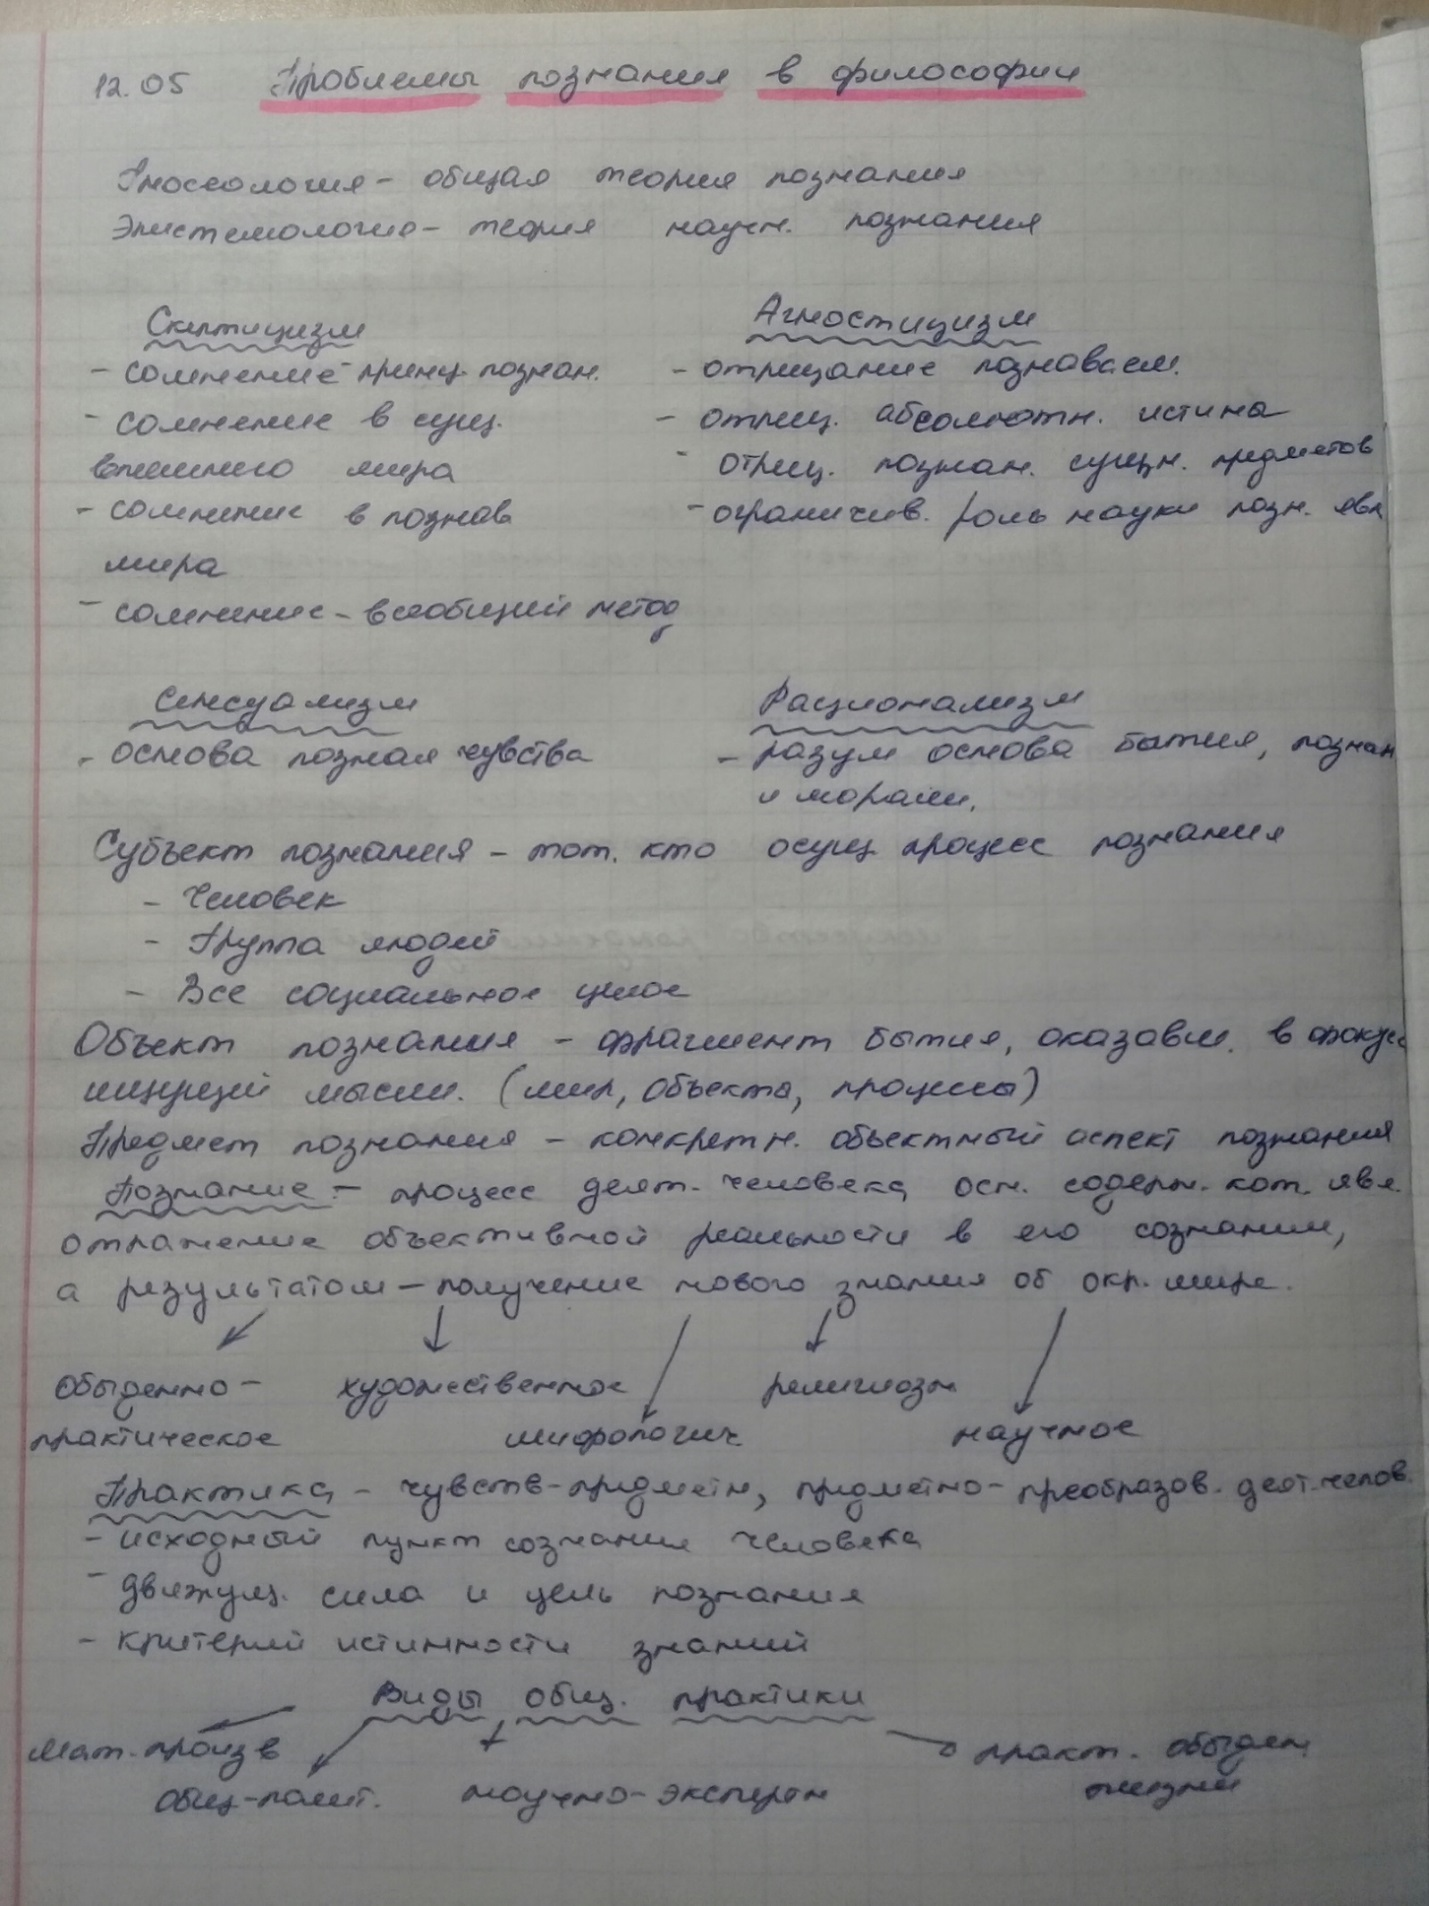 12.05 Проблемы познания в философии
Гносеология - общая теория познания
Эпистемология - теория научн. познания
Скептицизм
- сомнение - принц. познан.
- сомнение в сущ.
внешнего мира
- сомнение в познав
мира
- сомнение - всеобщий метод
Агностицизм
- отрицание познаваем.
- отриц. абсолютн. истина
- отриц. познан. сущн. предметов
- ограничив. роль науки позн. явл
Сенсуализм
- основа познан чувства
Рационализм
- разум основа бытия, познан
и морали.
Субъект познания - тот. кто осущ процесс познания
- Человек
- Группа людей
- Все социальное целое
Объект познания - фрагмент бытия, оказавш. в фокусе
ищущей мысли. (мир, объекта, процессы)
Предмет познания - конкретн. объектный аспект познания
Познание - процесс деят. человека осн. содерж. кот. явл.
отражение объективной реальности в его сознании,
а результатом - получение нового знания об окр. мире.
обыденно-
практическое
художественное
мифологич
религиозн
научное
Практика - чувств-предметн, предметно-преобразов. деят. челов.
- исходный пункт сознания человека
- движущ. сила и цель познания
- критерий истинности знаний
Виды общ. практики
Мат. произв
общ-полит.
научно-эксперем
практ. обыден
жизни